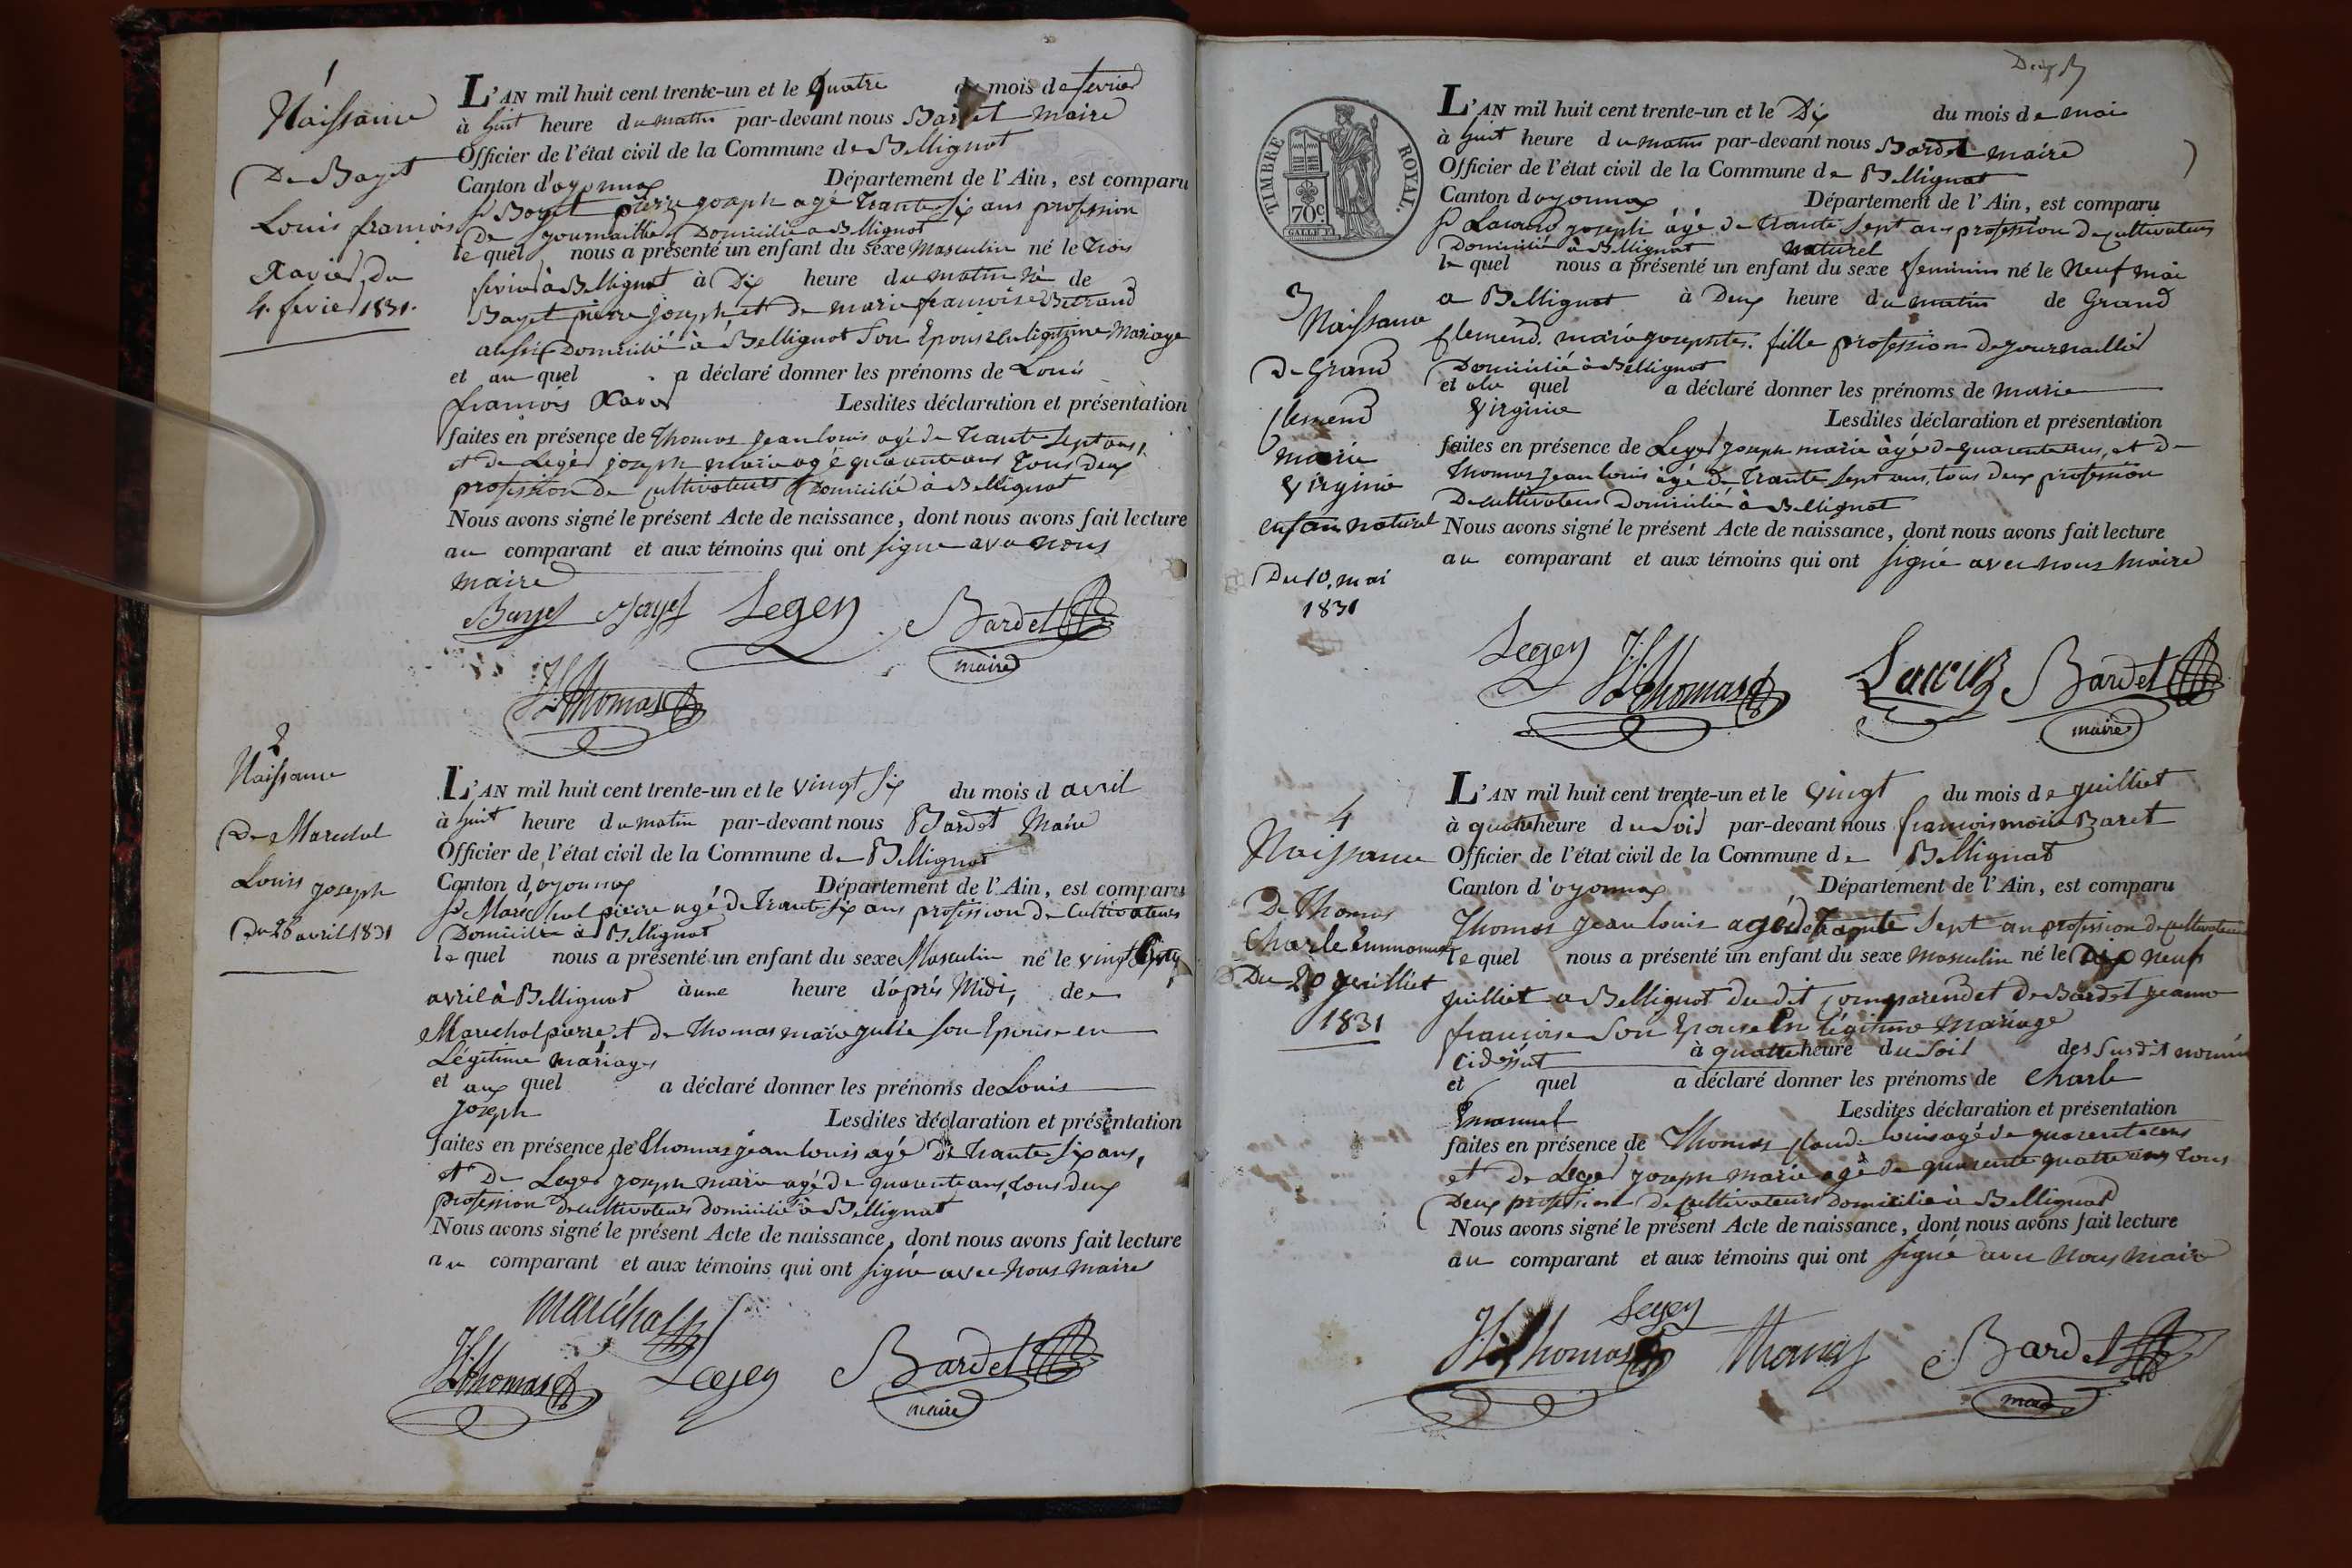 1
Naissance
De Bayet
Louis francois
Xavier du
4. fevrier 1831.
L'AN mil huit cent trente-un et le quatre du mois de fevrier
à huit heure du matin par-devant nous Bardet maire
Officier de l'état civil de la Commune de Bellignat
Canton d'oyonnax Département de l'Ain, est comparu
Sr Bayet pierre joseph age trante six ans profession
De journaillier Domicilié a Bellignat
le quel nous a présenté un enfant du sexe Masculin né le trois
fevrier à Bellignat à Dix heure du matin né de
Bayet pierre joseph et de marie francoise Butrand
aussi Domicilié à Bellignat Son Epouse en legitime Mariage
et au quel a déclaré donner les prénoms de Louis
francois Xavier Lesdites déclaration et présentation
faites en présence de Thomas jean louis agé de trante sept ans,
et de Leger joseph marie agé quarante ans tous deux
profession de cultivateurs Domicilié à Bellignat
Nous avons signé le présent Acte de naissance, dont nous avons fait lecture
au comparant et aux témoins qui ont signé avec nous
maire
Bayet Leger Bardet
maire
JL Thomas
2
Naissance
De Marechal
Louis joseph
Du 26 avril 1831
L'AN mil huit cent trente-un et le vingt six du mois d avril
à huit heure du matin par-devant nous Bardet Maire
Officier de l'état civil de la Commune de Bellignat
Canton d'oyonnax Département de l'Ain, est comparu
Sr Maréchal pierre agé de trante six ans profession de Cultivateurs
Domicilié à Bellignat
le quel nous a présenté un enfant du sexe Masculin né le vingt Cinq
avril à Bellignat à une heure d'après Midi, de
Marechal pierre et de Thomas marie julie son Epouse en
Légitime mariages
et aux quel a déclaré donner les prénoms de Louis
joseph Lesdites déclaration et présentation
faites en présence de Thomas jean louis agé de trante six ans,
et De Leger joseph marie agé de quarante ans, tous deux
profession de cultivateurs domicilié à Bellignat
Nous avons signé le présent Acte de naissance, dont nous avons fait lecture
au comparant et aux témoins qui ont signé avec nous maire
maréchal
JL Thomas Leger Bardet
maire
Deux
TIMBRE ROYAL.
70c.
3
Naissance
De Grand
Clemend
marie
Virginie
enfan naturel
Du 10. mai
1831
L'AN mil huit cent trente-un et le Dix du mois de mai
à huit heure du matin par-devant nous Bardet maire
Officier de l'état civil de la Commune de Bellignat
Canton d'oyonnax Département de l'Ain, est comparu
Sr joseph âgé de trante Sept ans profession De cultivateurs
Domicilié à Bellignat naturel
le quel nous a présenté un enfant du sexe feminin né le Neuf mai
a Bellignat à Deux heure du matin de Grand
Clemend. marie josephte. fille profession De journaillier
Domicilié à Bellignat
et quel a déclaré donner les prénoms de marie
Virginie Lesdites déclaration et présentation
faites en présence de Leger joseph marie âgé de quarente ans, et De
Thomas jean louis âgé De trante sept ans, tous deux profession
De cultivateurs Domicilié à Bellignat
Nous avons signé le présent Acte de naissance, dont nous avons fait lecture
au comparant et aux témoins qui ont signé avec nous maire
Leger JL Thomas Bardet
maire
4
Naissance
De Thomas
Charle Emmanuel
Du 20 juilliet
1831
L'AN mil huit cent trente-un et le vingt du mois de juilliet
à quatre heure du Soir par-devant nous francois marie Baret
Officier de l'état civil de la Commune de Bellignat
Canton d'oyonnax Département de l'Ain, est comparu
Thomas jean louis agé de trante sept an profession De cultivateur
le quel nous a présenté un enfant du sexe masculin né le Dix neuf
juilliet a Bellignat du dit comparend et De Bardet jeanne
francoise Son Epouse En légitime Mariage
cidessut à quatre heure du Soir des susdit nommé
et quel a déclaré donner les prénoms de Charle
Emanuel Lesdites déclaration et présentation
faites en présence de Thomas Claude louis agé de quarente ans
et De Leger joseph marie agé de quarente quatre ans tous
Deux profession De cultivateurs domicilié à Bellignat
Nous avons signé le présent Acte de naissance, dont nous avons fait lecture
au comparant et aux témoins qui ont signé avec nous maire
Leger
JL Thomas Thomas Bardet
maire